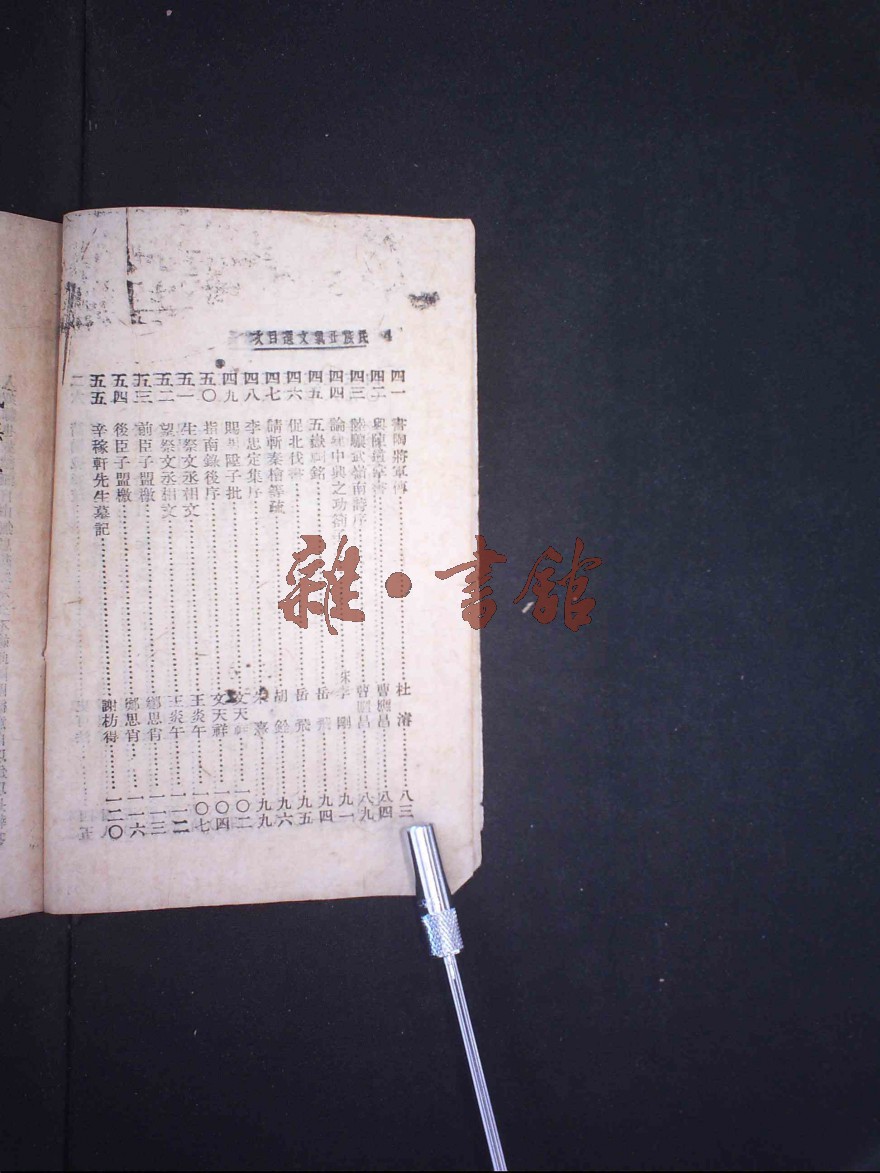 民族正氣文選目次
四一 書陶將軍傳 杜濬 八三
四二 與陳 書 曹國昌 八四
四三 嶺南詩序 曹國昌 八九
四四 論 中興之功劄子 李剛 九一
四五 五嶽祠銘 岳飛 九四
四六 促北伐書 岳飛 九五
四七 請斬秦檜等疏 胡銓 九六
四八 李忠定集序 朱熹 九九
四九 賜 陞子批 文天祥 一〇二
五〇 指南錄後序 文天祥 一〇四
五一 生祭文丞相文 王炎午 一〇七
五二 望祭文丞相文 王炎午 一一二
五三 前臣子盟檄 鄭思肖 一一三
五四 後臣子盟檄 鄭思肖 一一六
五五 辛稼軒先生墓記 謝枋得 一二〇
雜·書館